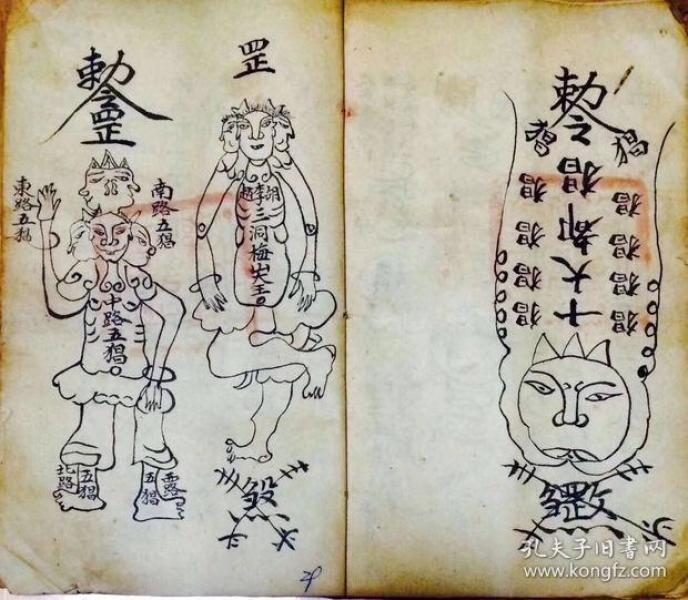 勅令
罡
東路五猖
南路五猖
中路五猖
北路
五猖
五猖
西路
罡
趙李胡
三洞梅山大王
斗
29
勅令
猖
猖
十大都猖
猖
猖
猖
猖
猖
猖
猖
猖
孔夫子旧書网
www.kongfz.com